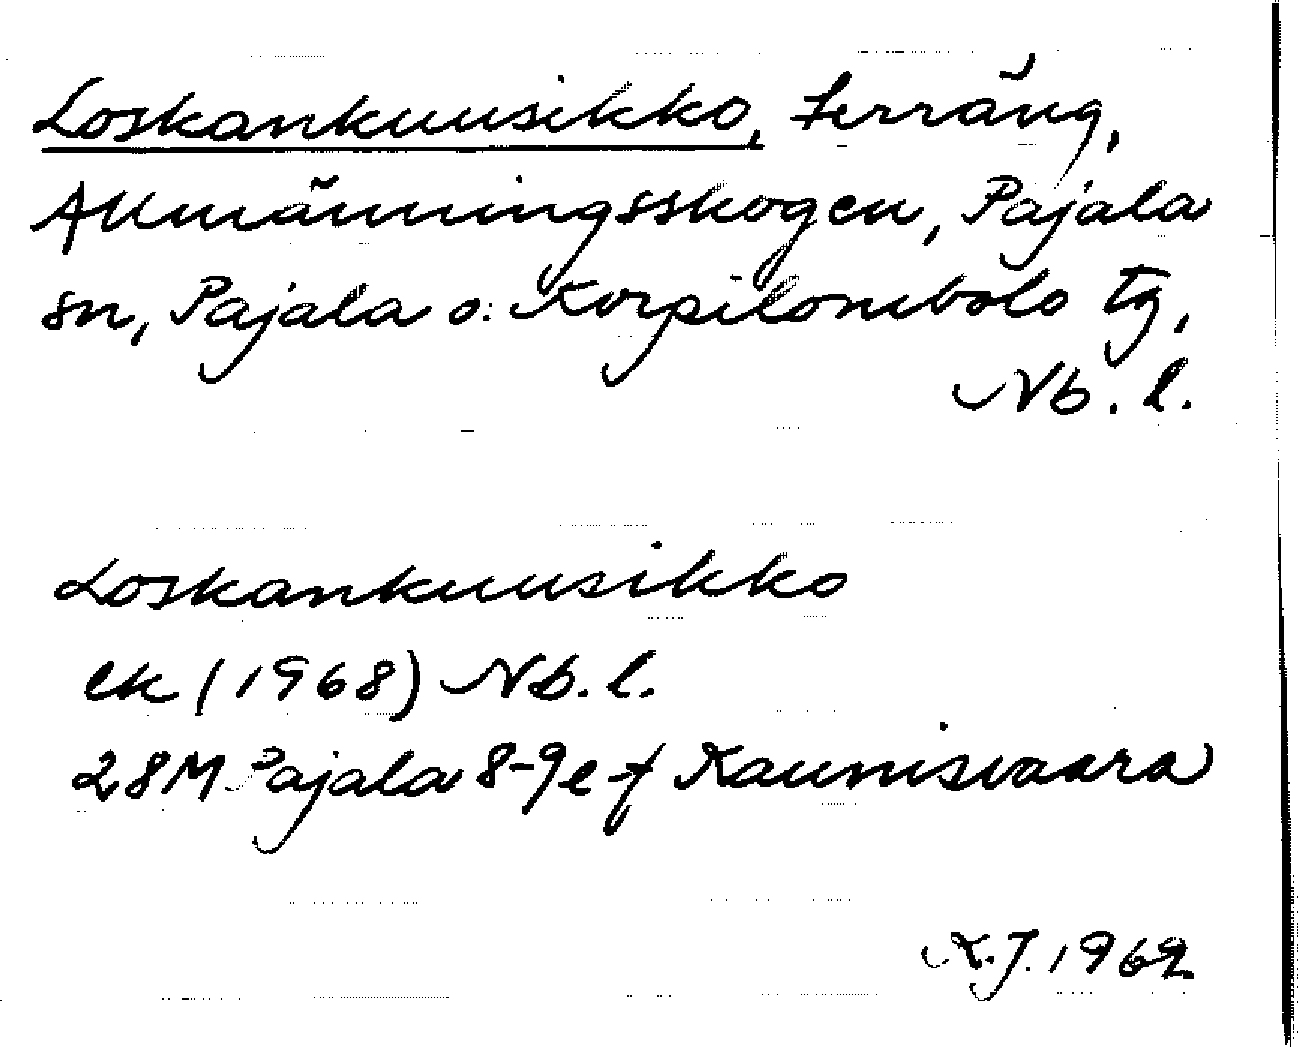 Loskankuusikko, terräng,
Allmänningsskogen, Pajala
sn, Pajala o. Korpilombolo tg,
Nb. l.
Loskankuusikko
ek (1968) Nb. l.
28M Pajala 8-9e-f Kaunisvaara
K.J. 1969